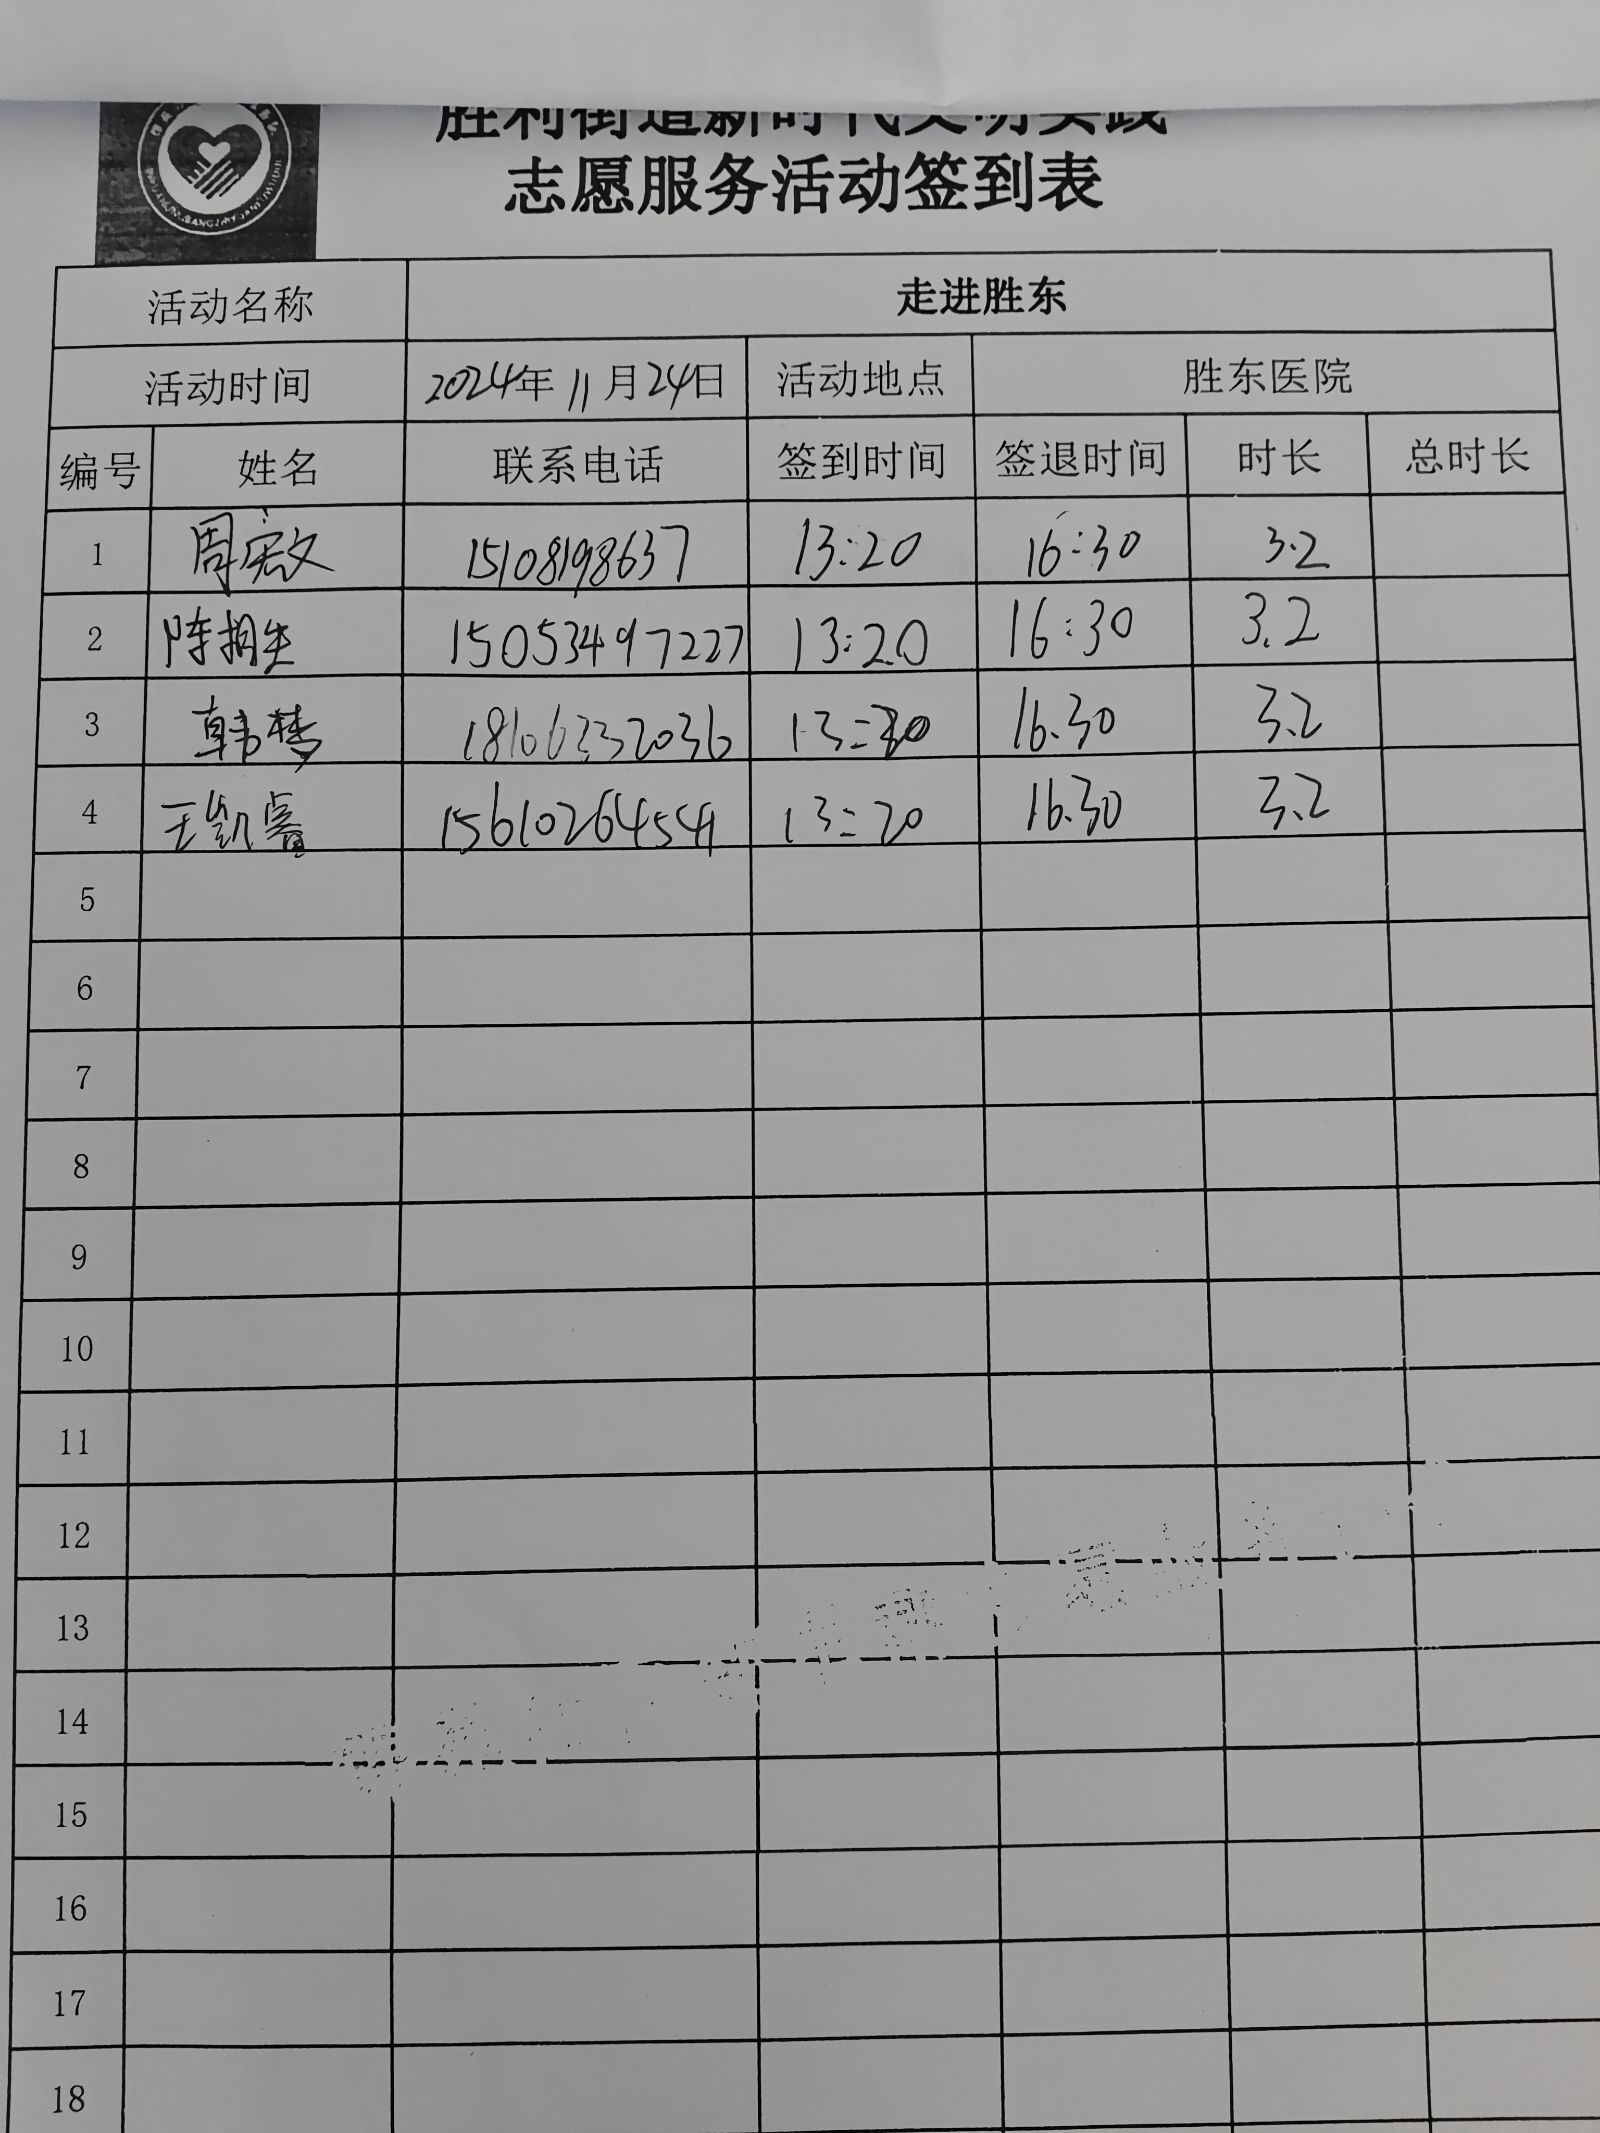 胜利街道新时代文明实践
志愿服务活动签到表
活动名称 走进胜东
活动时间 2024年11月24日 活动地点 胜东医院
编号 姓名 联系电话 签到时间 签退时间 时长 总时长
1 周宏文 15108198637 13:20 16:30 3.2
2 陈相生 15053497227 13:20 16:30 3.2
3 韩梦 18106332036 13:20 16.30 3.2
4 王凯睿 15610264541 13:20 16.30 3.2
5
6
7
8
9
10
11
12
13
14
15
16
17
18